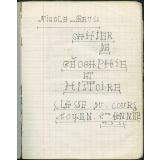 NICOLE
CAHIER
DE
GEOGRAPHIE
ET
HISTOIRE
CLASSE DU COURS
MOYEN 2e ANNEE